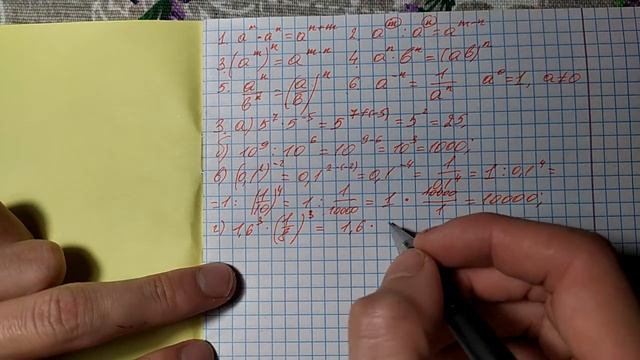 1. aᵐ · aⁿ = aⁿ⁺ᵐ 2. aᵐ : aⁿ = aᵐ⁻ⁿ
3. (aᵐ)ⁿ = aᵐⁿ 4. aⁿ · bⁿ = (ab)ⁿ
5. aⁿ/bⁿ = (a/b)ⁿ 6. a⁻ⁿ = 1/aⁿ a⁰ = 1, a ≠ 0
3. а) 5⁷ · 5⁻⁵ = 5⁷⁺⁽⁻⁵⁾ = 5² = 25;
б) 10⁹ : 10⁶ = 10⁹⁻⁶ = 10³ = 1000;
в) (0,1²)⁻² = 0,1²·⁽⁻²⁾ = 0,1⁻⁴ = 1/0,1⁴ = 1 : 0,1⁴ =
= 1 : (1/10)⁴ = 1 : 1/10000 = 1 · 10000/1 = 10000;
г) 1,6³ · (1/8)³ = 1,6 ·